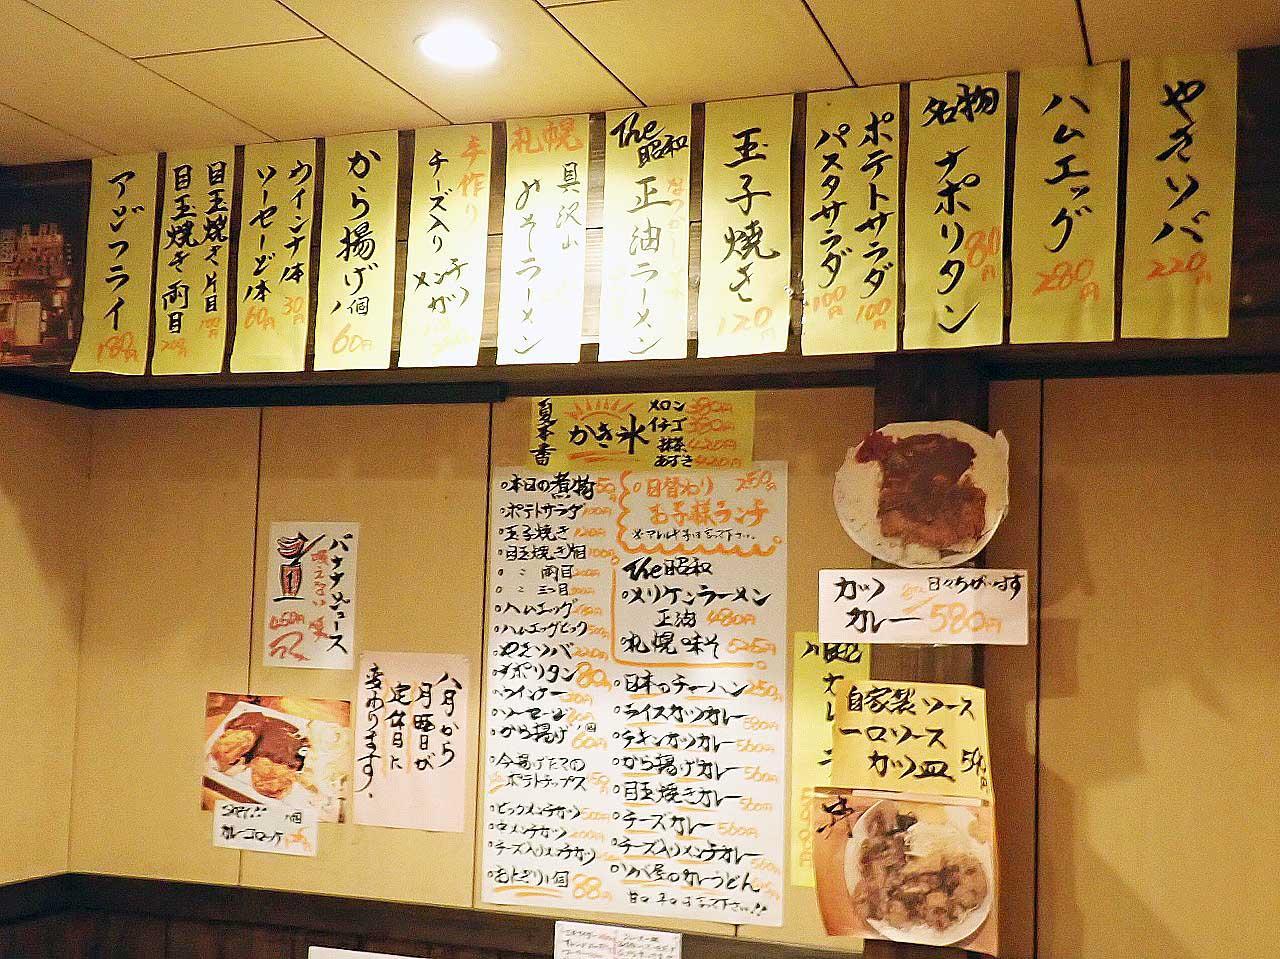 やきソバ
220円
ハムエッグ
280円
名物
ナポリタン
80円
ポテトサラダ
100円
パスタサラダ
100円
玉子焼き
120円
The
昭和
正油ラーメン
札幌
具沢山
みそラーメン
手作り
チーズ入り
メンチ
カツ
から揚げ
1個
60円
ウインナー1本
30円
ソーセージ1本
60円
目玉焼き片目
100円
目玉焼き両目
200円
アジフライ
180円
夏本番
かき氷
メロン 380円
イチゴ
抹茶 420円
あずき 420円
本日の煮物
ポテトサラダ 100円
玉子焼き 120円
目玉焼き片目 100円
〃 両目 200円
〃 三つ目
ハムエッグ
ハムエッグビッグ
やきソバ 220円
ナポリタン 80円
ウインナー
ソーセージ
から揚げ 1個 60円
今揚げたての
ポテトチップス
ビックメンチカツ
メンチカツ
チーズ入りメンチカツ
88円
日替わり 250円
お子様ランチ
The 昭和
メリケンラーメン
正油 480円
札幌味そ
日本のチャーハン 250円
ライスカツカレー
チキンカツカレー 560円
から揚げカレー 560円
目玉焼きカレー 560円
チーズカレー 560円
チーズ入りメンチカレー
ソバ屋のカレーうどん
カツ
カレー
日々ちがいます
580円
自家製ソース
一口ソース
カツ皿
バナナジュース
八月から
月曜日が
定休日に
変わります.
カレーコロッケ
1個